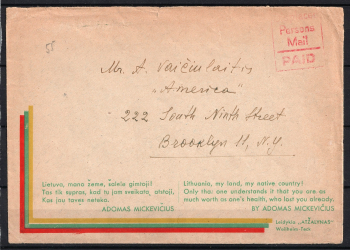 55
Persona
Mail
PAID
Mr. A. Vaičiulaitis
"America"
222 South Ninth Street
Brooklyn 11, N.Y.
Lietuva, mano žeme, šalele gimtoji!
Tas tik supras, kad tu jam sveikata, atstoji,
Kas jau tavęs neteko.
ADOMAS MICKEVIČIUS
Lithuania, my land, my native country!
Only tho: one understands it that you are as
much worth as one's health, who lost you already.
BY ADOMAS MICKEVIČIUS
Leidykla „ATŽALYNAS"